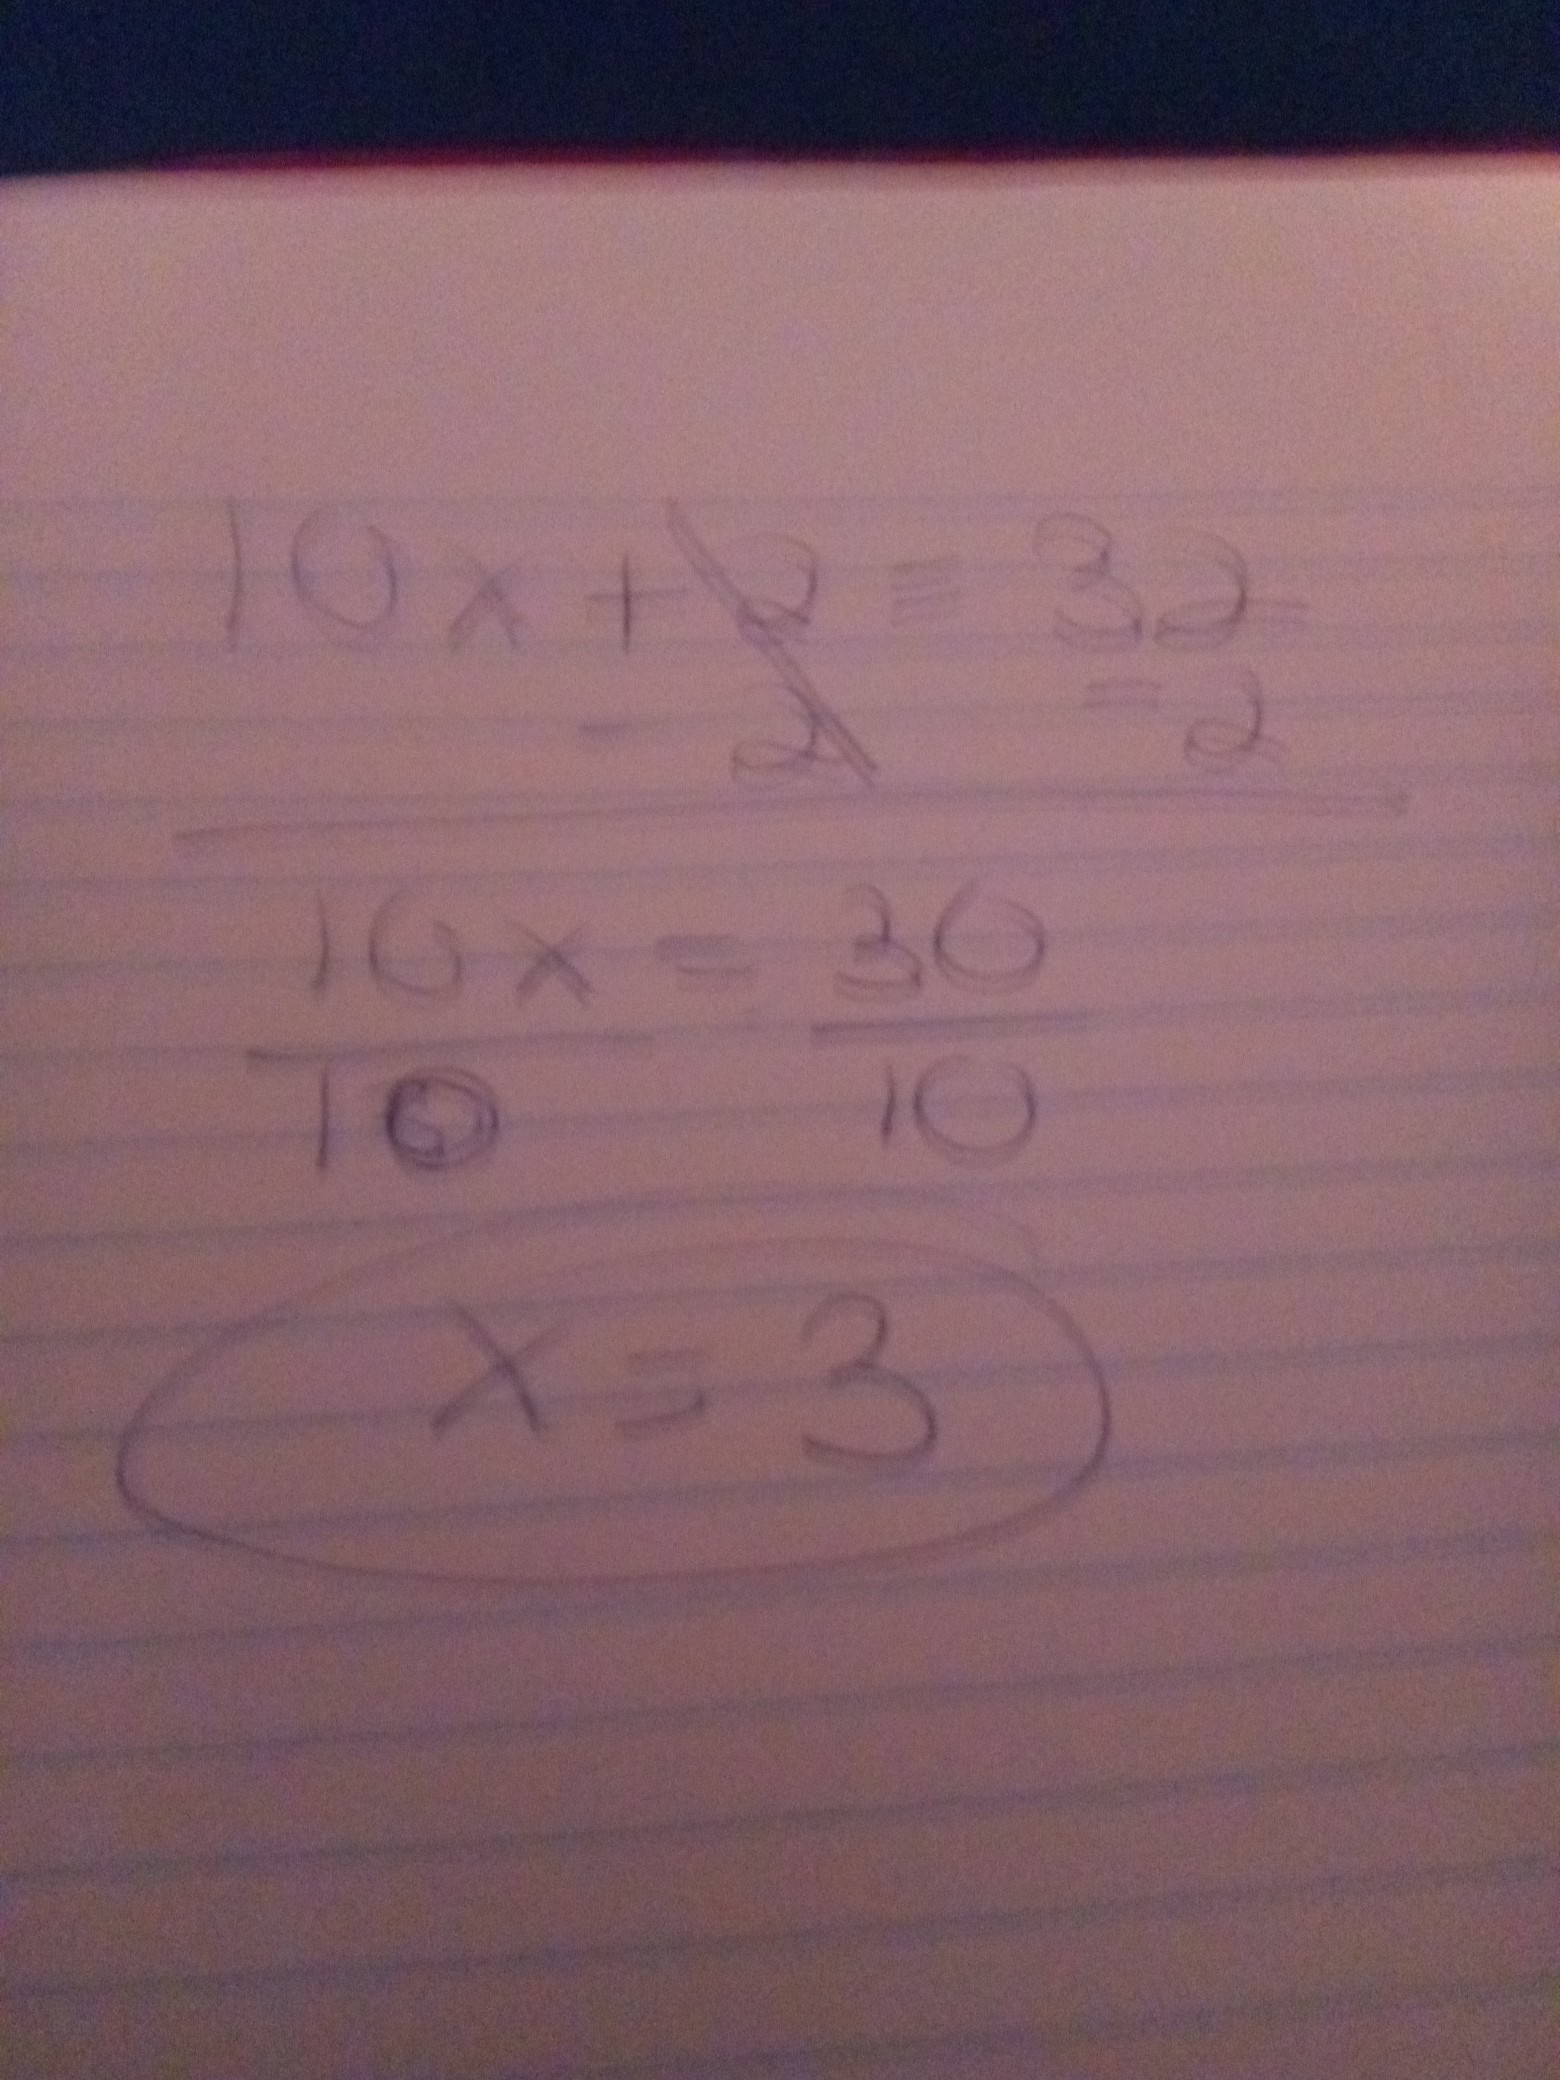 10x + 2 = 32
- 2 = 2
10x = 30
10 10
x = 3